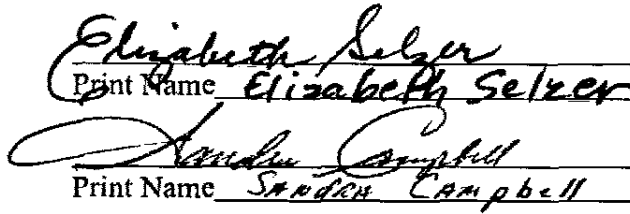 Elizabeth Selzer
Print Name Elizabeth Selzer
Sandra Campbell
Print Name SANDRA CAMPbell